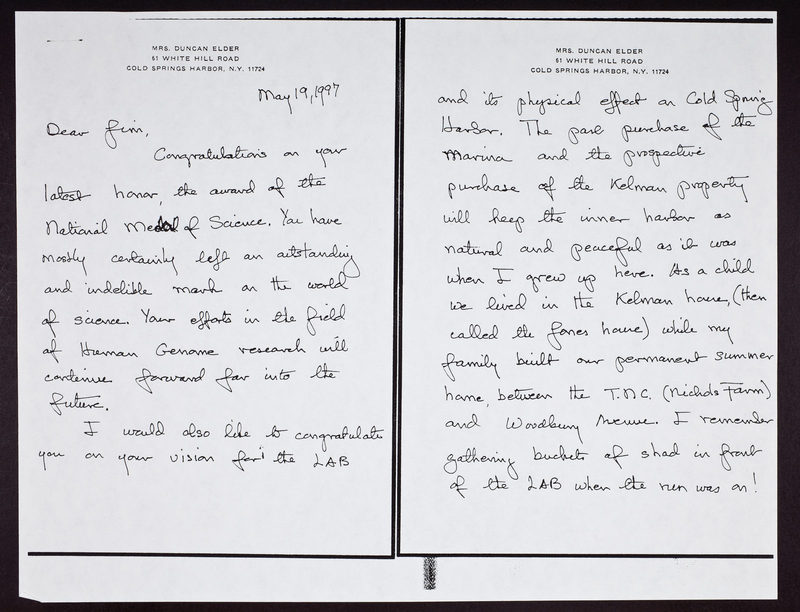 MRS. DUNCAN ELDER
61 WHITE HILL ROAD
COLD SPRINGS HARBOR, N.Y. 11724
May 19, 1997
Dear Jim,
Congratulations on your
latest honor, the award of the
National Medal of Science. You have
mostly certainly left an outstanding
and indelible mark on the world
of science. Your efforts in the field
of Human Genome research will
continue forward far into the
future.
I would also like to congratulate
you on your vision for the LAB
MRS. DUNCAN ELDER
61 WHITE HILL ROAD
COLD SPRINGS HARBOR, N.Y. 11724
and its physical effect on Cold Spring
Harbor. The past purchase of the
Marina and the prospective
purchase of the Kelman property
will keep the inner harbor as
natural and peaceful as it was
when I grew up here. As a child
we lived in the Kelman house, (then
called the Jones house) while my
family built our permanent summer
home, between the T.N.C. (Nichols Farm)
and Woodbury Avenue. I remember
gathering buckets of shad in front
of the LAB when the run was on!